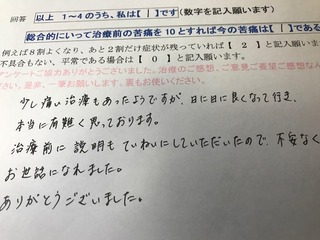 回答　以上　1～4のうち、私は【　｜　】です（数字を記入願います）
総合的にいって治療前の苦痛を10とすれば今の苦痛は【　｜　】である
例えば8割よくなり、あと2割だけ症状が残っていれば【　2　】と記入願い
不具合もない、平常である場合は【　0　】と記入願います。
アンケートご協力ありがとうございました。治療のご感想、ご意見ご要望ご感想など
是非、一筆お願いします。裏もお使いください。
少し痛い治療もあったようですが、日に日に良くなって行き、
本当に有難く思っております。
治療前に説明もていねいにしていただいたので、不安なく
お世話になれました。
ありがとうございました。